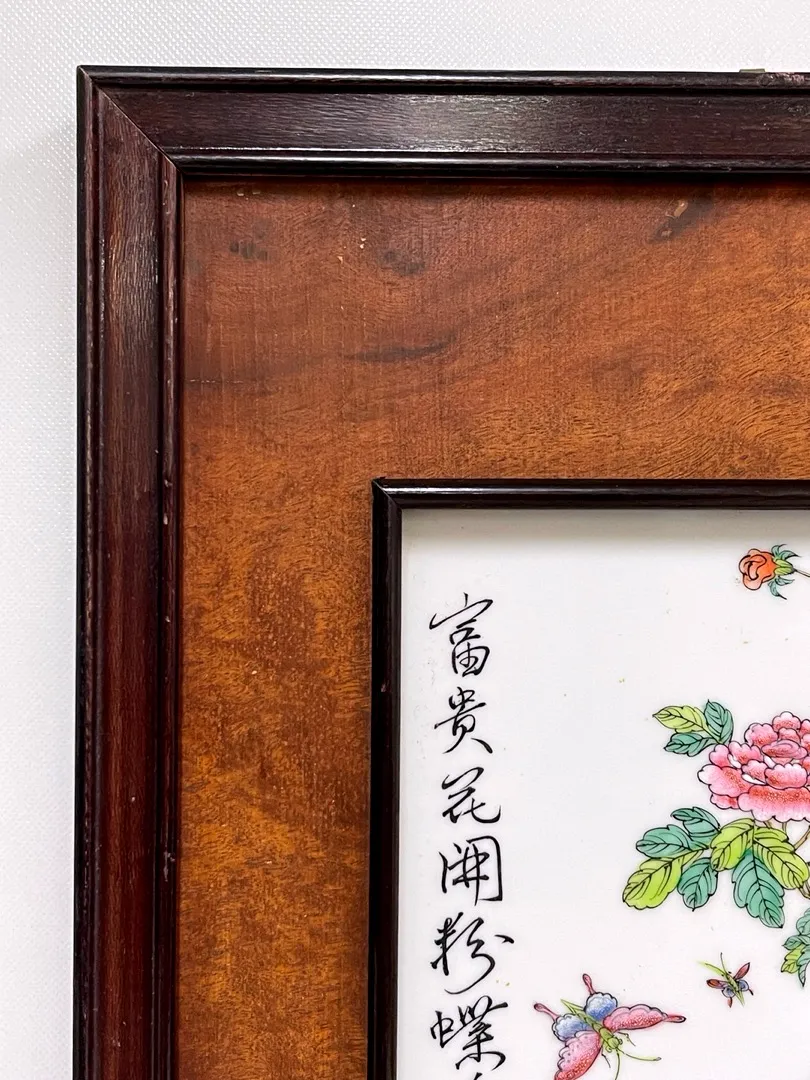 富貴花開粉蝶